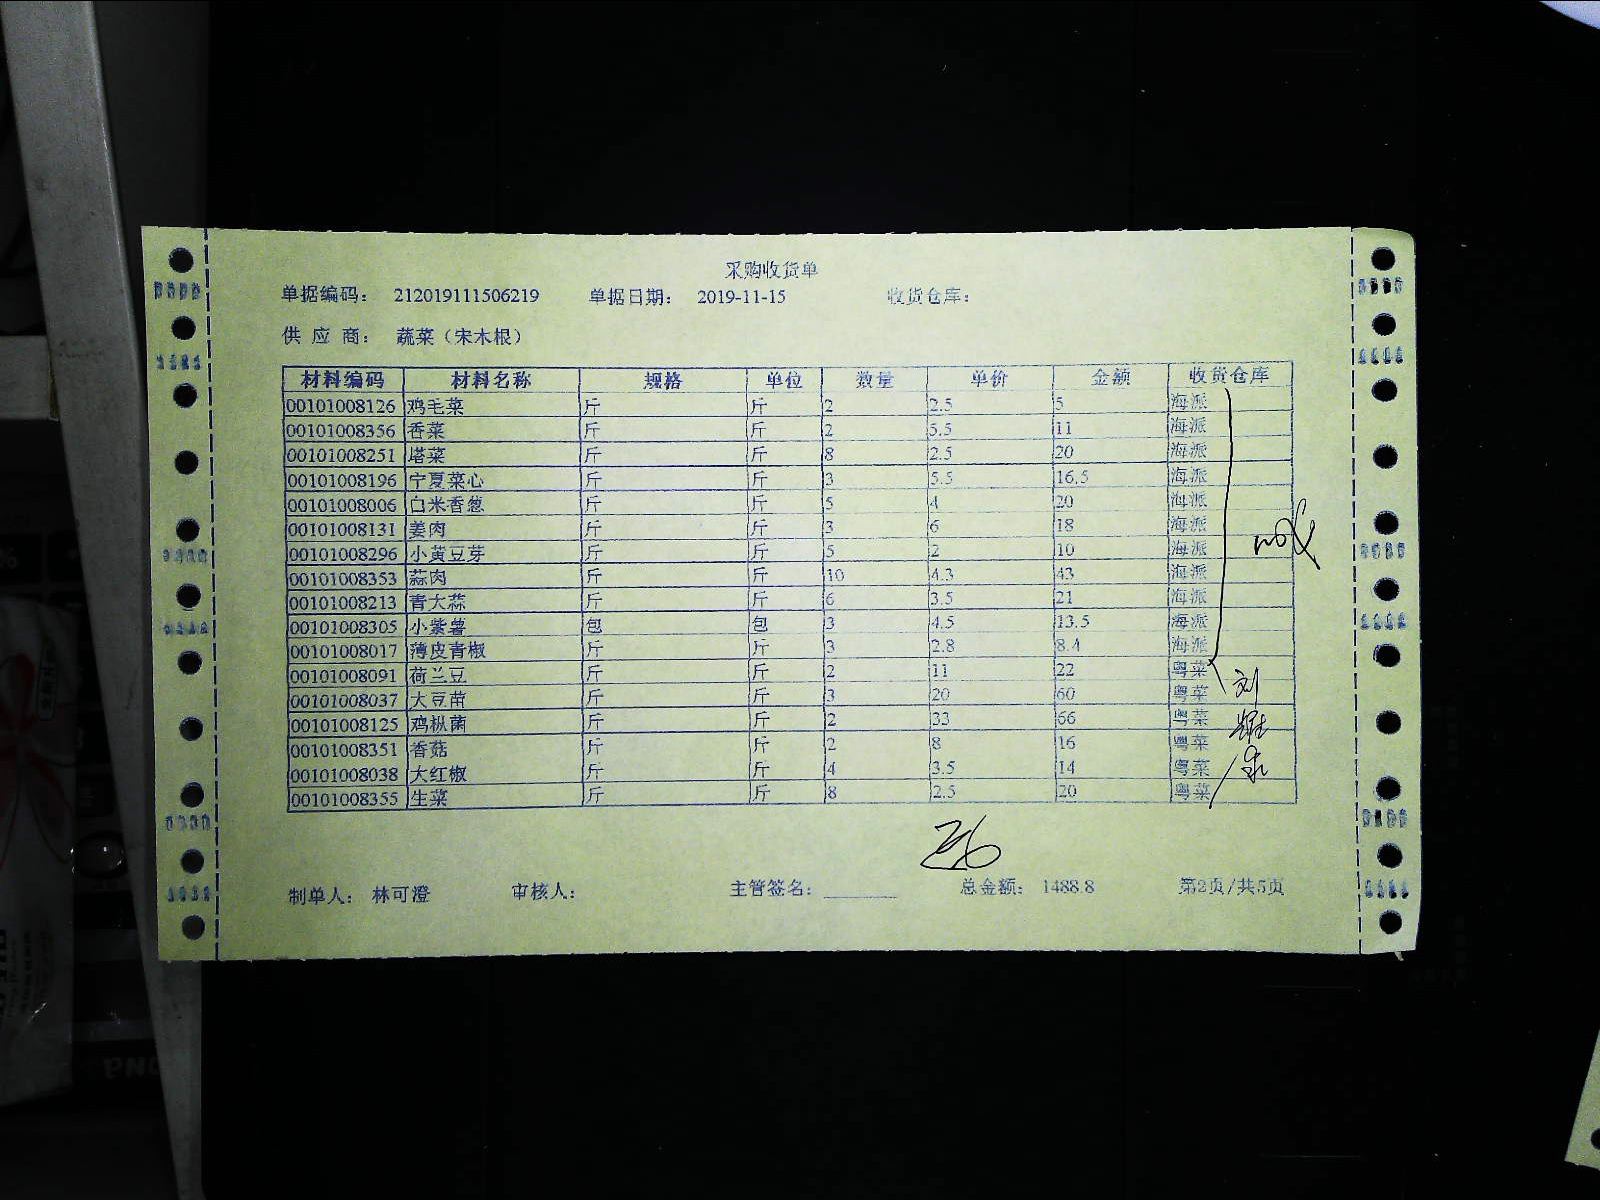 采购收货单
单据编码： 212019111506219 单据日期： 2019-11-15 收货仓库：
供 应 商： 蔬菜（宋木根）
材料编码 材料名称 规格 单位 数量 单价 金额 收货仓库
00101008126 鸡毛菜 斤 斤 2 2.5 5 海派
00101008356 香菜 斤 斤 2 5.5 11 海派
00101008251 塔菜 斤 斤 8 2.5 20 海派
00101008196 宁夏菜心 斤 斤 3 5.5 16.5 海派
00101008006 白米香葱 斤 斤 5 4 20 海派
00101008131 姜肉 斤 斤 3 6 18 海派
00101008296 小黄豆芽 斤 斤 5 2 10 海派
00101008353 蒜肉 斤 斤 10 4.3 43 海派
00101008213 青大蒜 斤 斤 6 3.5 21 海派
00101008305 小紫薯 包 包 3 4.5 13.5 海派
00101008017 薄皮青椒 斤 斤 3 2.8 8.4 海派
00101008091 荷兰豆 斤 斤 2 11 22 粤菜
00101008037 大豆苗 斤 斤 3 20 60 粤菜
00101008125 鸡枞菌 斤 斤 2 33 66 粤菜
00101008351 香菇 斤 斤 2 8 16 粤菜
00101008038 大红椒 斤 斤 4 3.5 14 粤菜
00101008355 生菜 斤 斤 8 2.5 20 粤菜
制单人： 林可澄 审核人： 主管签名： 总金额： 1488.8 第2页/共5页